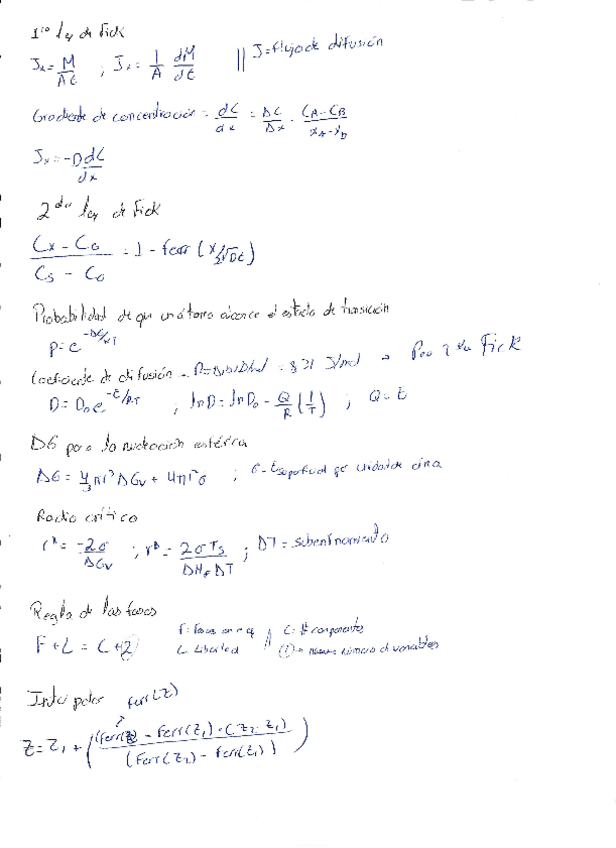 1ra ley de Fick
Jx = M/At ; Jx = 1/A dM/dt || J = flujo de difusión
Gradiente de concentración = dC/dx = ΔC/Δx = CA - CB/xA - xB
Jx = -D dC/dx
2da ley de Fick
Cx - C0/Cs - C0 = 1 - ferr(x/2√Dt)
Probabilidad de que un átomo alcance el estado de transición
p = e^-ΔE/KT
Coeficiente de difusión → Por 2da Fick
D = D0 e^-E/RT ; lnD = lnD0 - Q/R (1/T) ; Q = E
ΔG para la nucleación esférica
ΔG = 4/3 πr³ ΔGv + 4πr²σ ; σ = Esuperficial por unidad de área
Radio crítico
r* = -2σ/ΔGv ; r* = 2σTs/ΔHf ΔT ; ΔT = subenfriamiento
Regla de las fases
F + L = C + 2 F: Fases en eq // C: # componentes
L: Libertad número de variables
Interpolar ferr(z)
z = z1 + ((ferr(z) - ferr(z1)) · (z2 - z1)/(ferr(z2) - ferr(z1)))